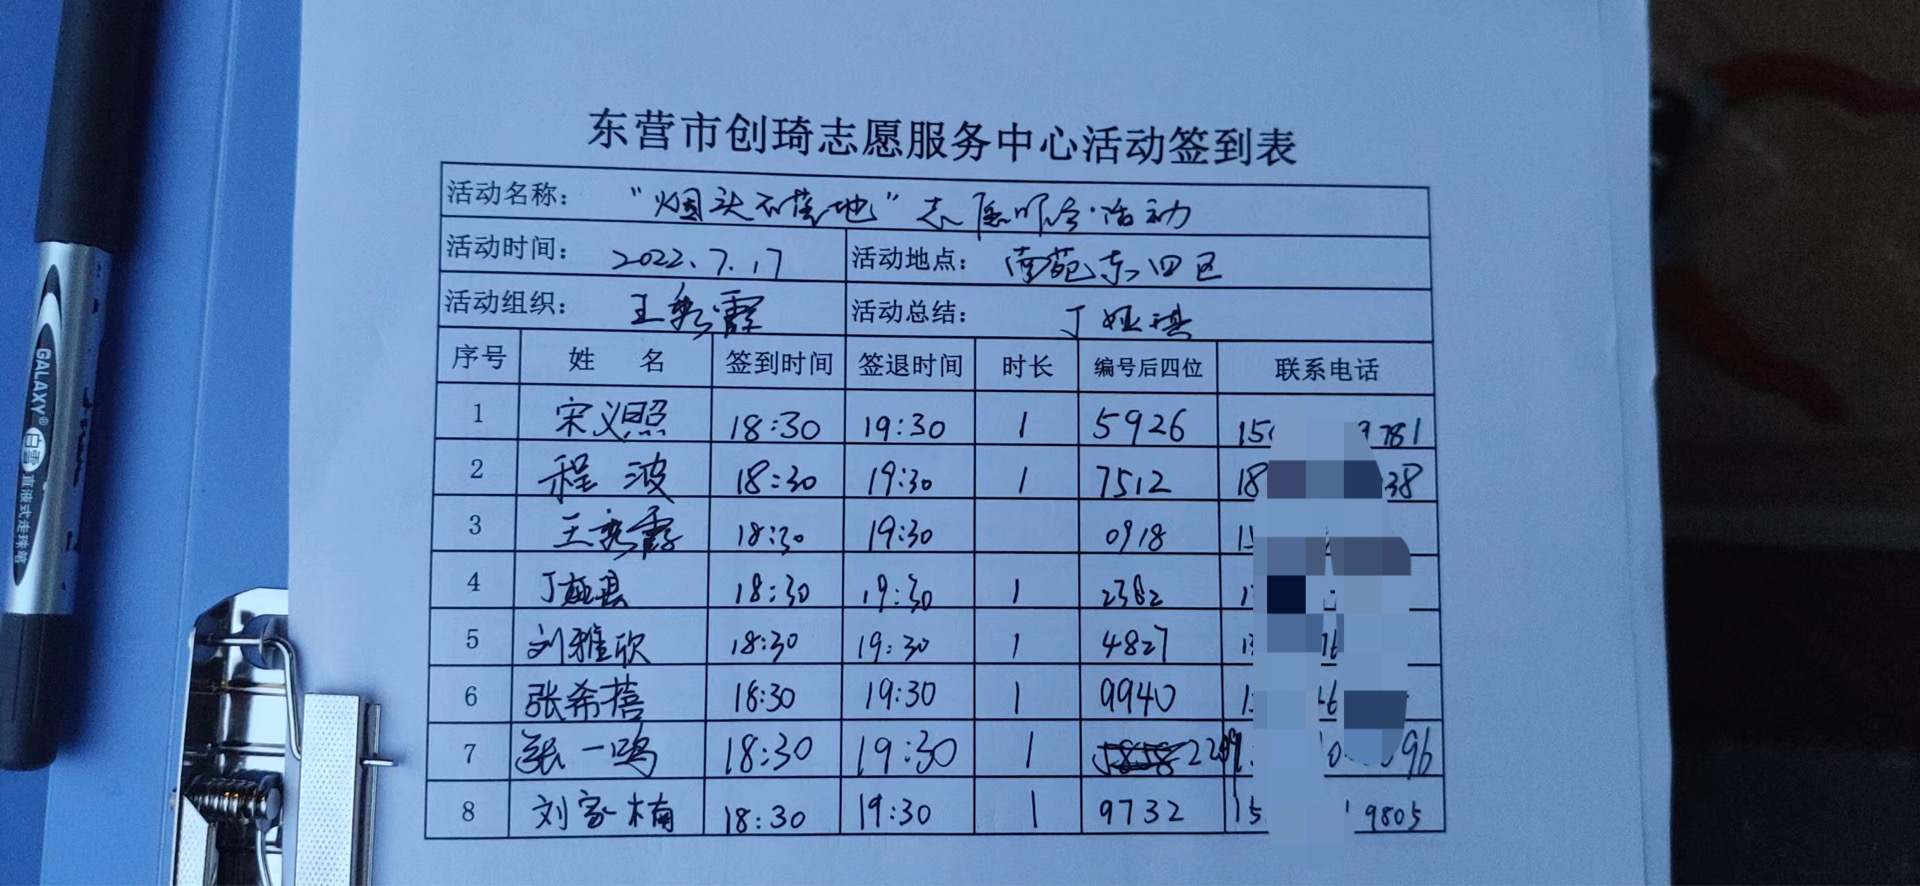 东营市创琦志愿服务中心活动签到表
活动名称： “烟头不落地”志愿服务活动
活动时间： 2022.7.17 活动地点： 南苑东四区
活动组织： 王秀霞 活动总结： 丁娅琪
序号 姓 名 签到时间 签退时间 时长 编号后四位 联系电话
1 宋义照 18:30 19:30 1 5926 15 781
2 程波 18:30 19:30 1 7512 18 38
3 王秀霞 18:30 19:30 0918
4 丁娅琪 18:30 19:30 1 2382
5 刘雅欣 18:30 19:30 1 4827
6 张希蓓 18:30 19:30 1 9940
7 张一鸣 18:30 19:30 1 96
8 刘家楠 18:30 19:30 1 9732 15 9805
GALAXY®
白雪
直液式走珠笔